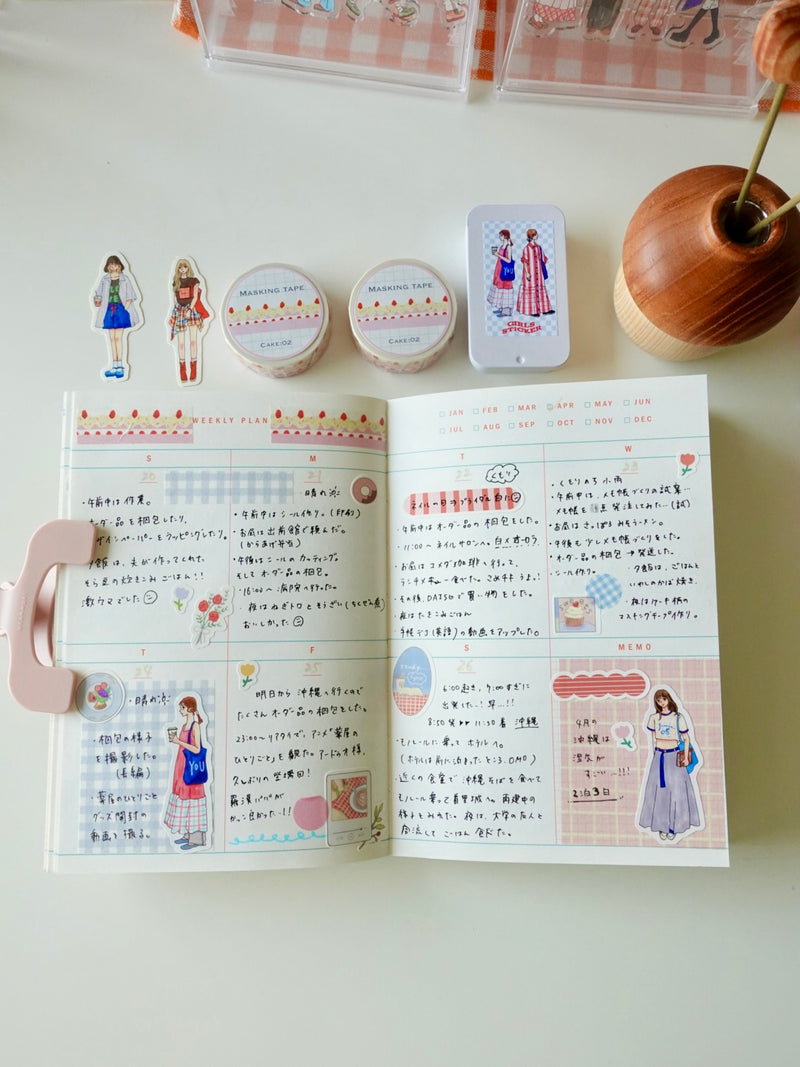 MASKING TAPE
CAKE:02
MASKING TAPE
CAKE:02
YOU
GIRLS
STICKER
WEEKLY PLAN
JAN FEB MAR APR MAY JUN
JUL AUG SEP OCT NOV DEC
S
20
・午前中は作業。
オーダー品を梱包したり、
夕飯は、夫が作ってくれて、
そら豆の炊きこみごはん!!
激ウマでした
M
21
晴れ
・午前中はシール作り。(印刷)
・お昼は出前館で頼んだ。
(からあげ弁当)
・午後はシールのカッティング
そしてオーダー品の梱包。
・16:00〜病院へ行った。
・夜はねぎトロとそうざい
おいしかった
T
22
くもり
ネイルの日
・午前中はオーダー品の梱包をした。
・11:00〜ネイルサロンへ。
・お昼はコメダ珈琲へ行って、
・その後、DAISOで買い物をした。
・夜はたきこみごはん
手帳デコの動画をアップした。
W
23
・くもりのち小雨
・午前中、メモ帳づくりの試案…
・お昼はさっぽろみそラーメン。
・午後も少しメモ帳づくりをした。
・オーダー品の梱包→発送した。
・シール作り。
・夕飯は、ごはんと
・夜はケーキ柄の
マスキングテープ作り。
T
24
・晴れ
・梱包の様子
を撮影した。
(長編)
・薬屋のひとりごと
グッズ開封の
動画も撮る。
YOU
F
25
明日から沖縄へ行くので
たくさんオーダー品の梱包をした。
23:00〜リアタイで、アニメ「薬屋の
ひとりごと」を観た。
久しぶりの
羅漢パパが
S
26
6:00起き、9:00すぎに
出発した!
8:50発 11:30着 沖縄
・モノレールに乗ってホテルへ。
・近くの食堂で沖縄そばを食べて
モノレール乗って首里城へ。再建中の
様子をみれた。夜は、大学の友人と
合流してごはん食べた。
MEMO
4月の
沖縄は
湿気が
すごい〜!!!
2泊3日